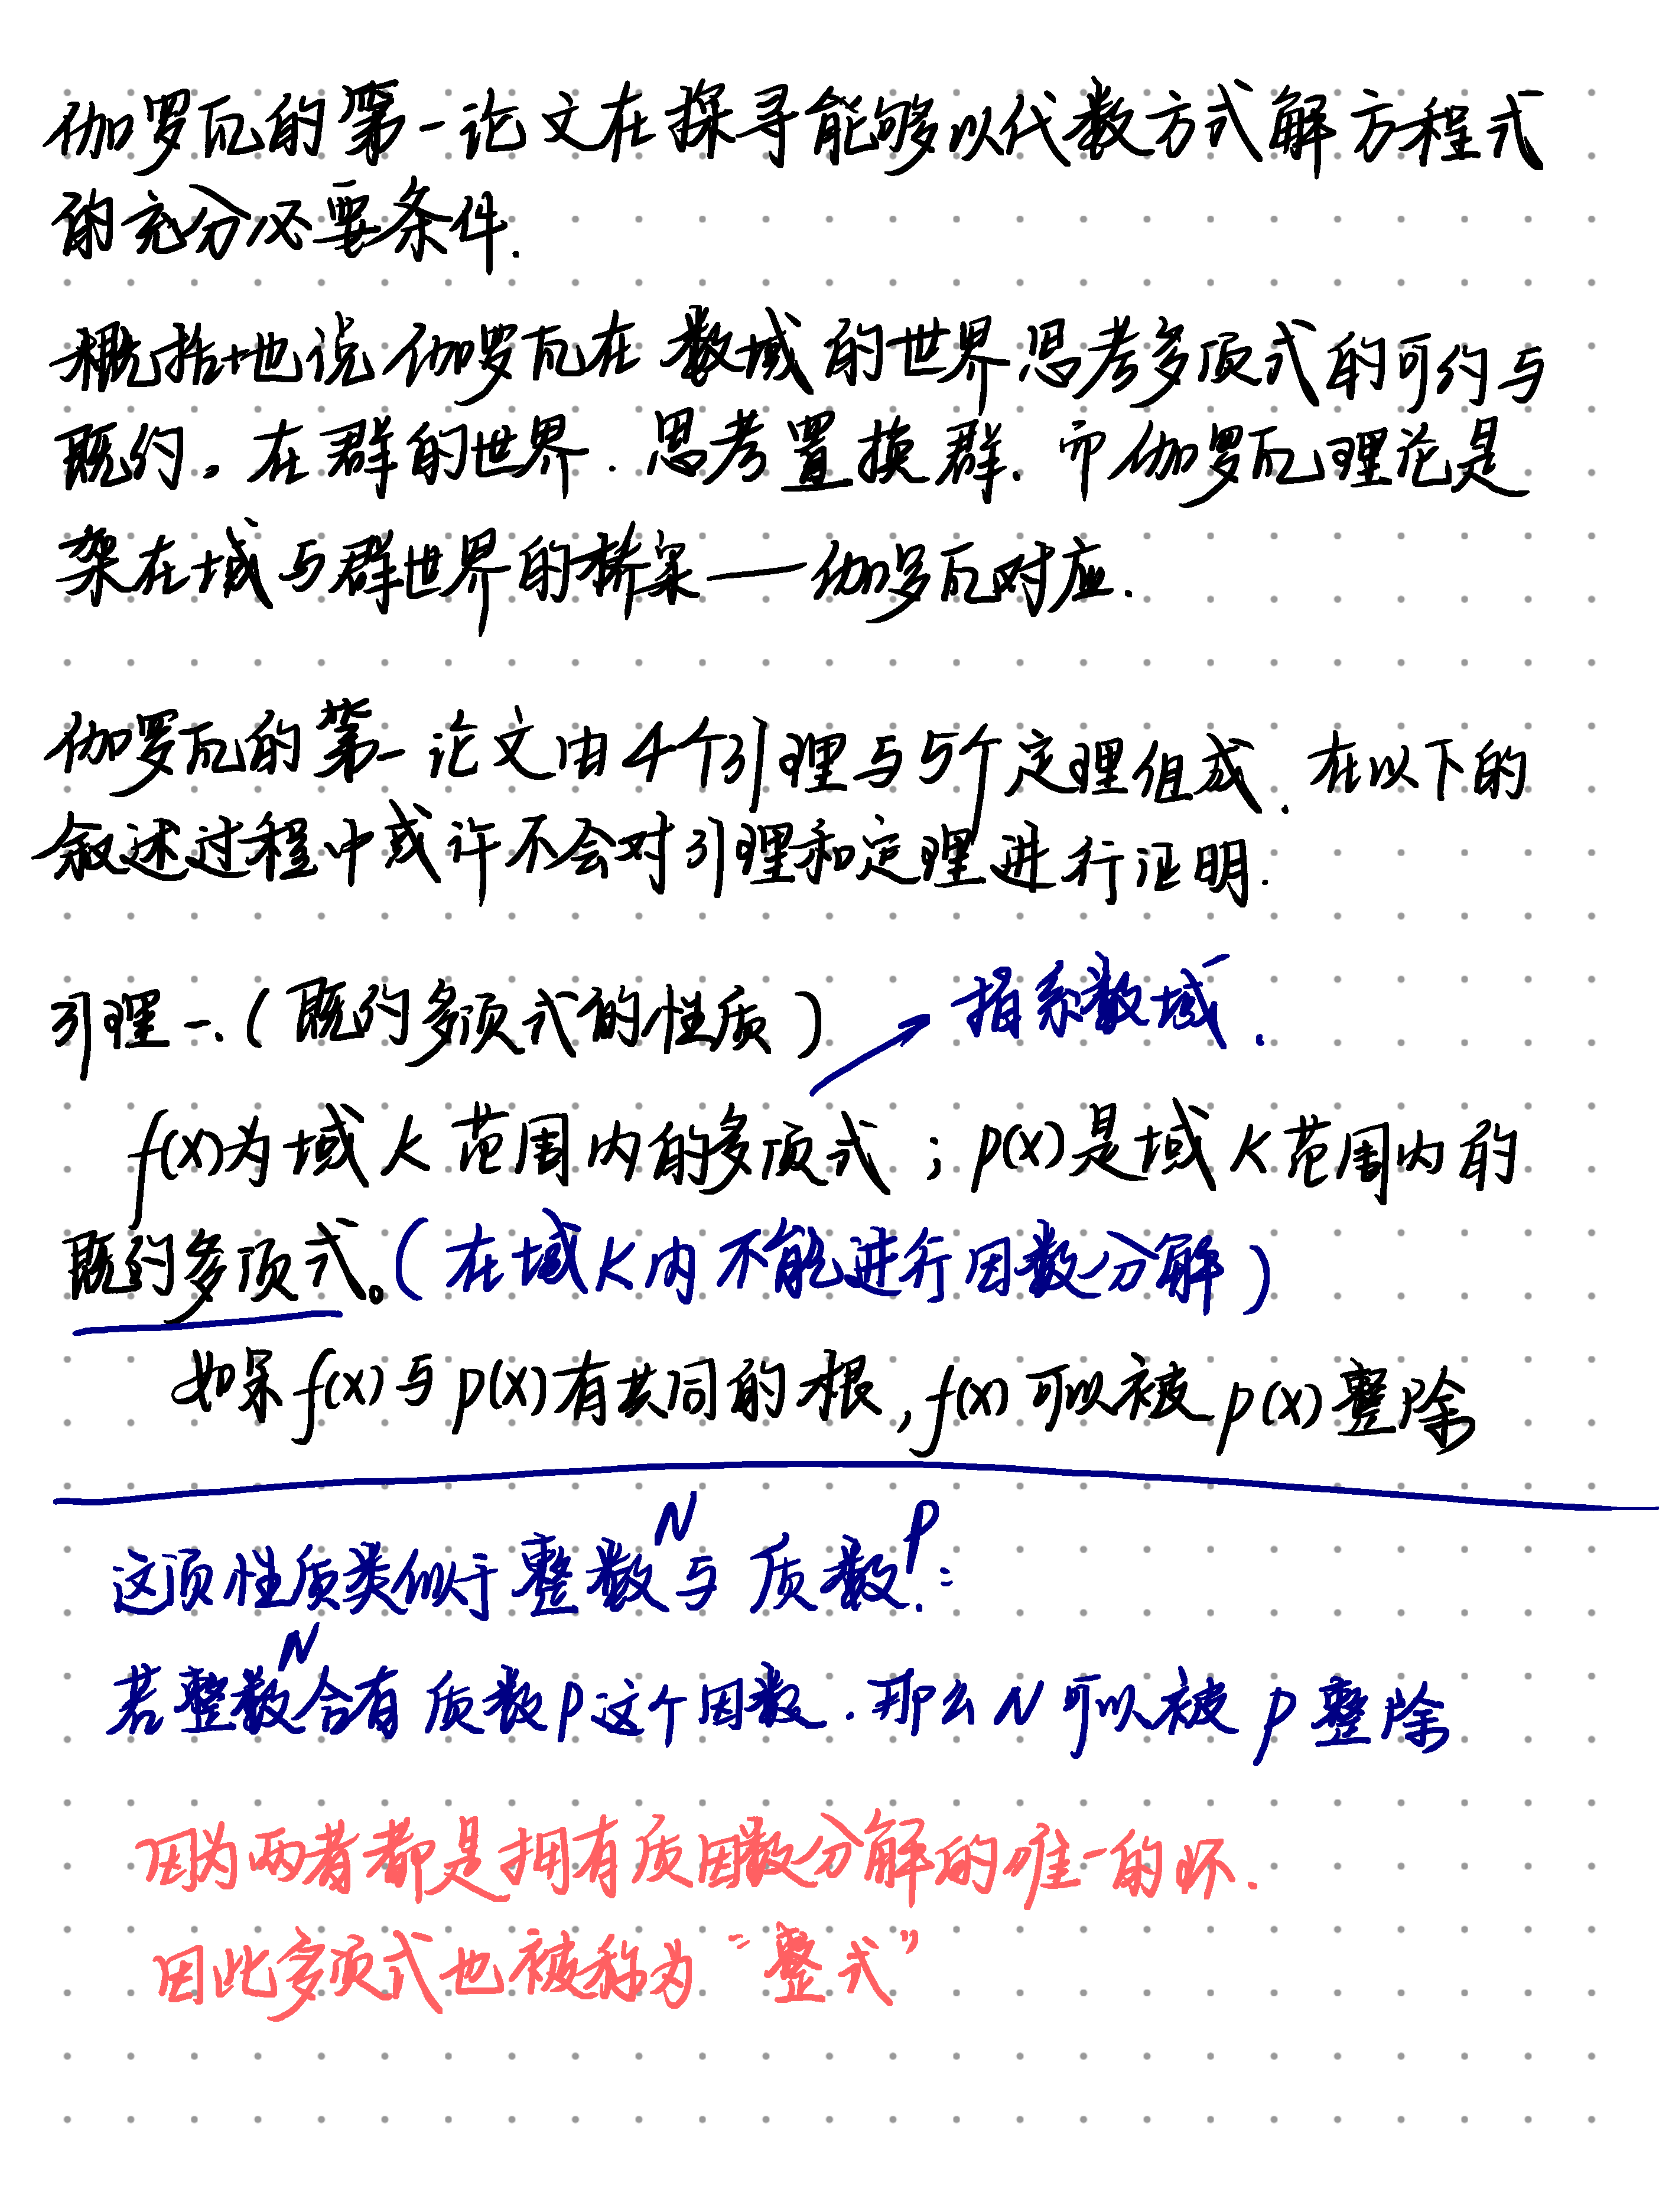 伽罗瓦的第一论文在探寻能够以代数方式解方程式
的充分必要条件.
概括地说伽罗瓦在数域的世界思考多项式的可约与
既约。在群的世界.思考置换群.而伽罗瓦理论是
架在域与群世界的桥梁——伽罗瓦对应.
伽罗瓦的第一论文由4个引理与5个定理组成.在以下的
叙述过程中或许不会对引理和定理进行证明.
引理一.(既约多项式的性质)
指系数域.
f(x)为域K范围内的多项式;p(x)是域K范围内的
既约多项式。(在域K内不能进行因数分解)
如果f(x)与p(x)有共同的根,f(x)可以被p(x)整除
这项性质类似于整数N与质数P:
若整数N含有质数P这个因数.那么N可以被P整除
因为两者都是拥有质因数分解的唯一的环.
因此多项式也被称为“整式”